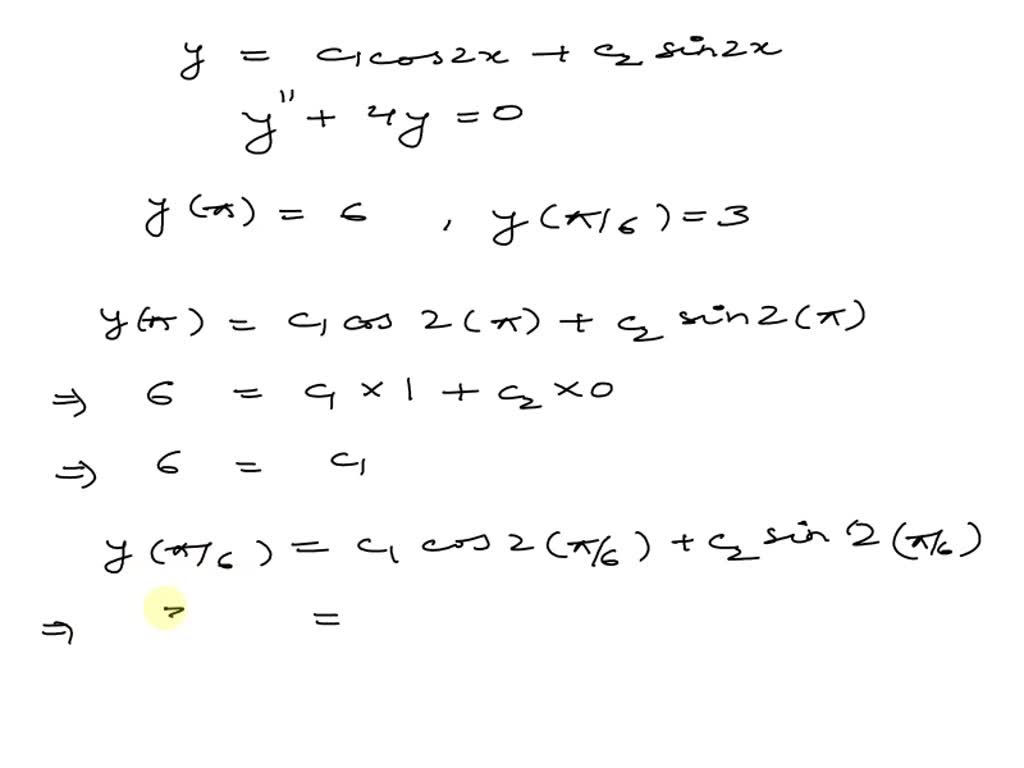 y = c₁cos2x + c₂ sin2x
y" + 4y = 0
y(π) = 6 , y(π/6) = 3
y(π) = c₁ cos 2(π) + c₂ sin2(π)
⇒ 6 = c₁ × 1 + c₂ × 0
⇒ 6 = c₁
y(π/6) = c₁ cos2(π/6) + c₂ sin 2(π/6)
⇒ =